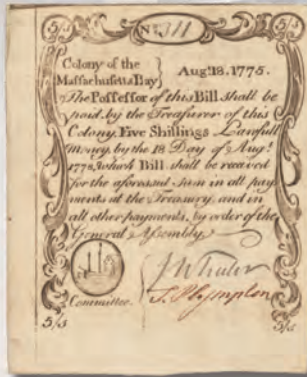 5/s No 311 5/s
Colony of the
Massachusetts Bay } Augt 18. 1775.
The Possessor of this Bill shall be
paid by the Treasurer of this
Colony Five Shillings Lawfull
Money, by the 18 Day of Augt
1778, which Bill shall be received
for the aforesaid sum in all pay
ments at the Treasury, and in
all other payments, by order of the
General Assembly
Committee.
5/s 5/s